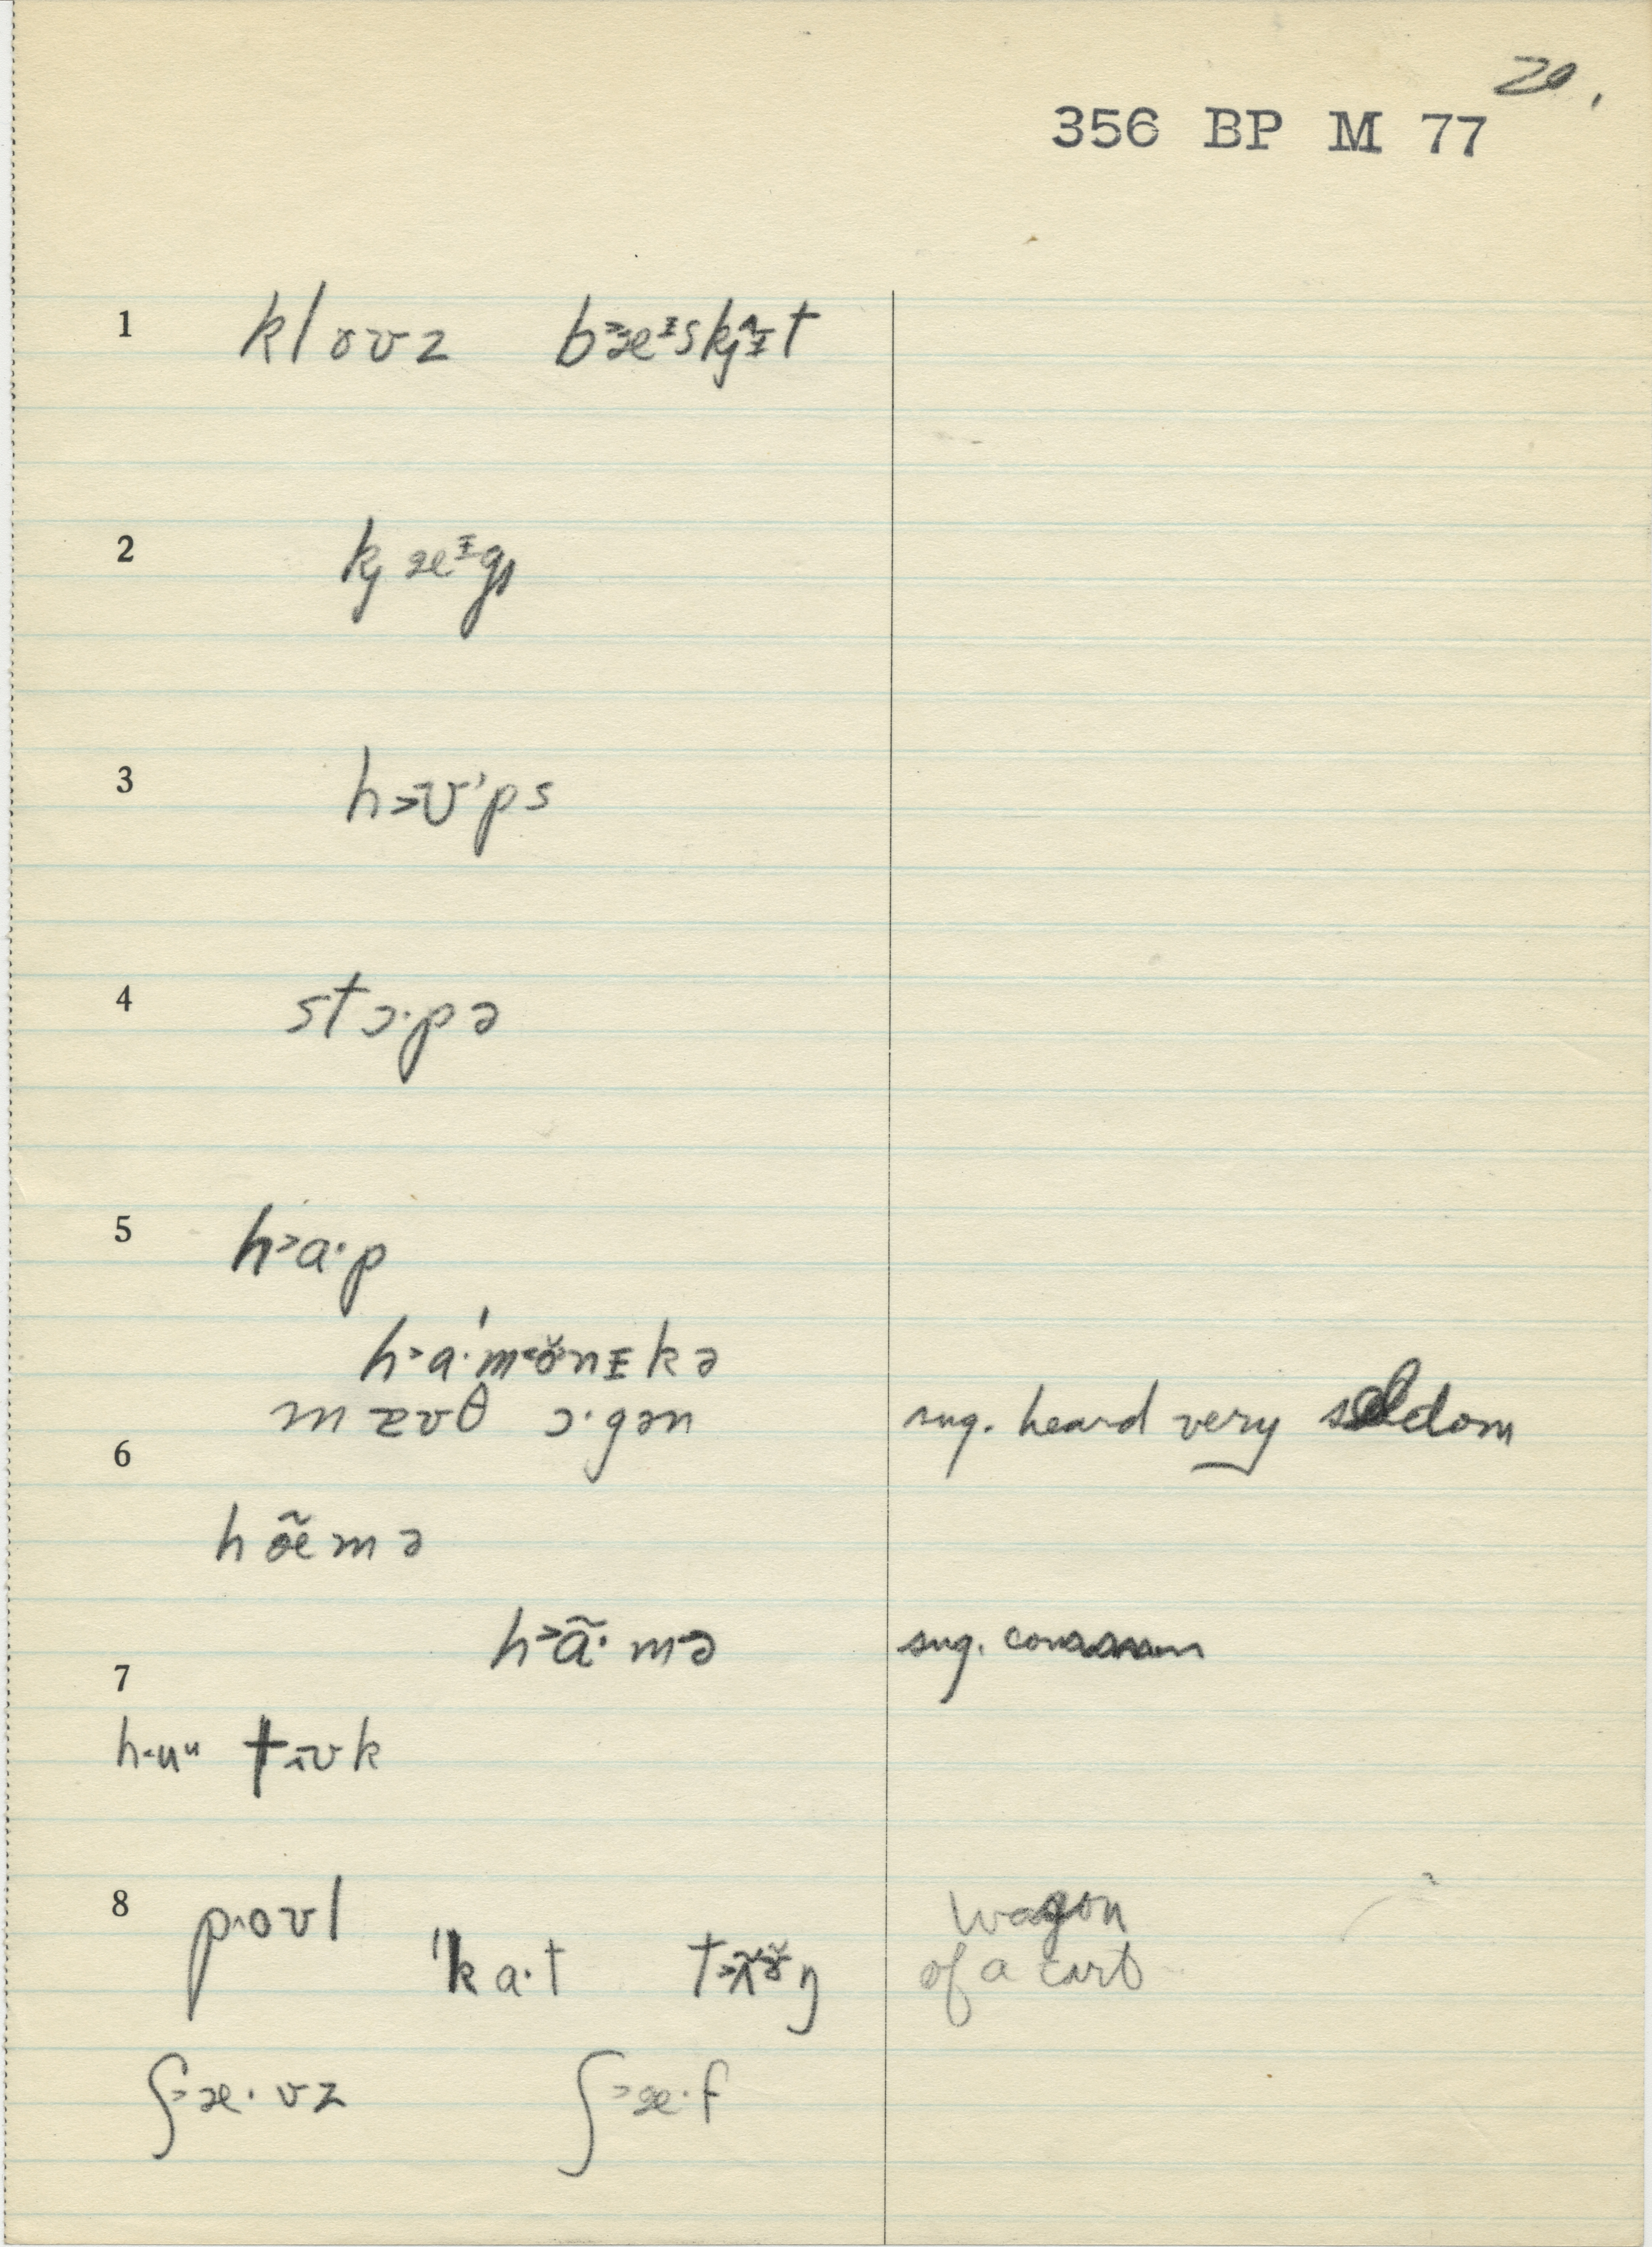 20.
356 BP M 77
1 kloʊz b˃æᶦskʲɪ̂t
2 kʲæᶦgz
3 h˃ʊ'ps
4 stɔ·pə
5 h˃a·p
h˃a·'m˂ɵ̆nɪkə
mæʊθ ɔ·gən sug. heard very seldom
6
hœ̃mə
h˃ã·mə sug. common
7
h˂uᵘ tʌʊk
8 p˄oʊl wagon
'ka·t t˃ʌ̃ɤ̆ŋ of a cart
ʃ˃æ·vz ʃ˃æ·f